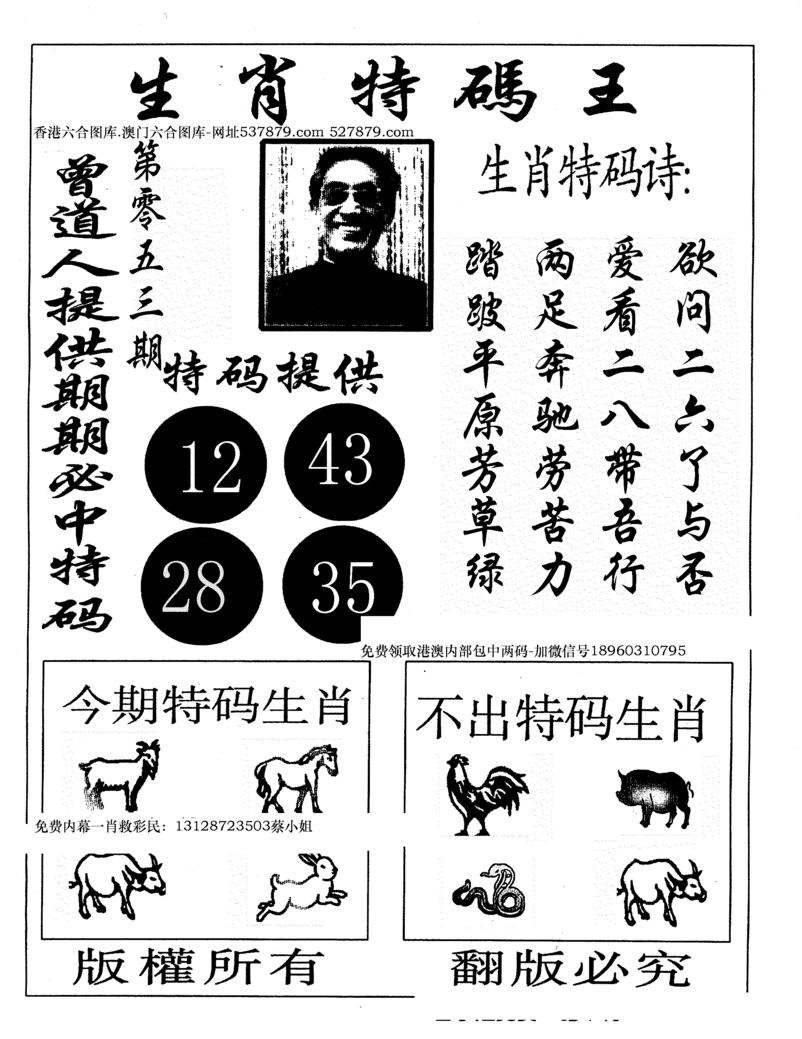 生肖特碼王
香港六合图库.澳门六合图库-网址537879.com 527879.com
第零五三期
曾道人提供期期必中特码
生肖特码诗:
欲问二六了与否
爱看二八带吾行
两足奔驰劳苦力
踏跛平原芳草绿
特码提供
12 43
28 35
免费领取港澳内部包中两码-加微信号18960310795
今期特码生肖
不出特码生肖
免费内幕一肖救彩民：13128723503蔡小姐
版權所有
翻版必究